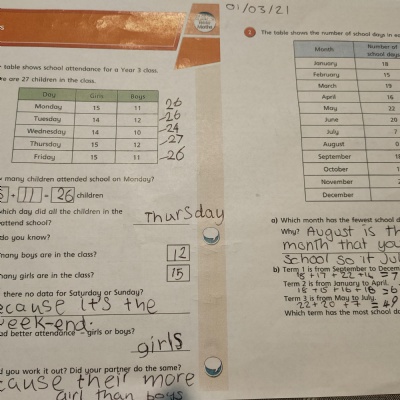 01/03/21
table shows school attendance for a Year 3 class.
are 27 children in the class.
Day Girls Boys
Monday 15 11 26
Tuesday 14 12 26
Wednesday 14 10 24
Thursday 15 12 27
Friday 15 11 26
many children attended school on Monday?
+ 11 = 26 children
which day did all the children in the
attend school? Thursday
do you know?
many boys are in the class? 12
many girls are in the class? 15
there no data for Saturday or Sunday?
ecause it's the
eek-end.
had better attendance – girls or boys?
girls
you work it out? Did your partner do the same?
cause their more
girl than boys
1 The table shows the number of school days in
Month Number of school days
January 18
February 15
March 19
April 16
May 22
June 20
July 7
August 0
September
October
November
December
a) Which month has the fewest school
Why? August is th
month that you
School so it Jul
b) Term 1 is from September to
18 + 17 + 22 + 14 = 7
Term 2 is from January to April.
18 + 15 + 16 + 16 = 6
Term 3 is from May to July.
22 + 20 + 7 = 49
Which term has the most school